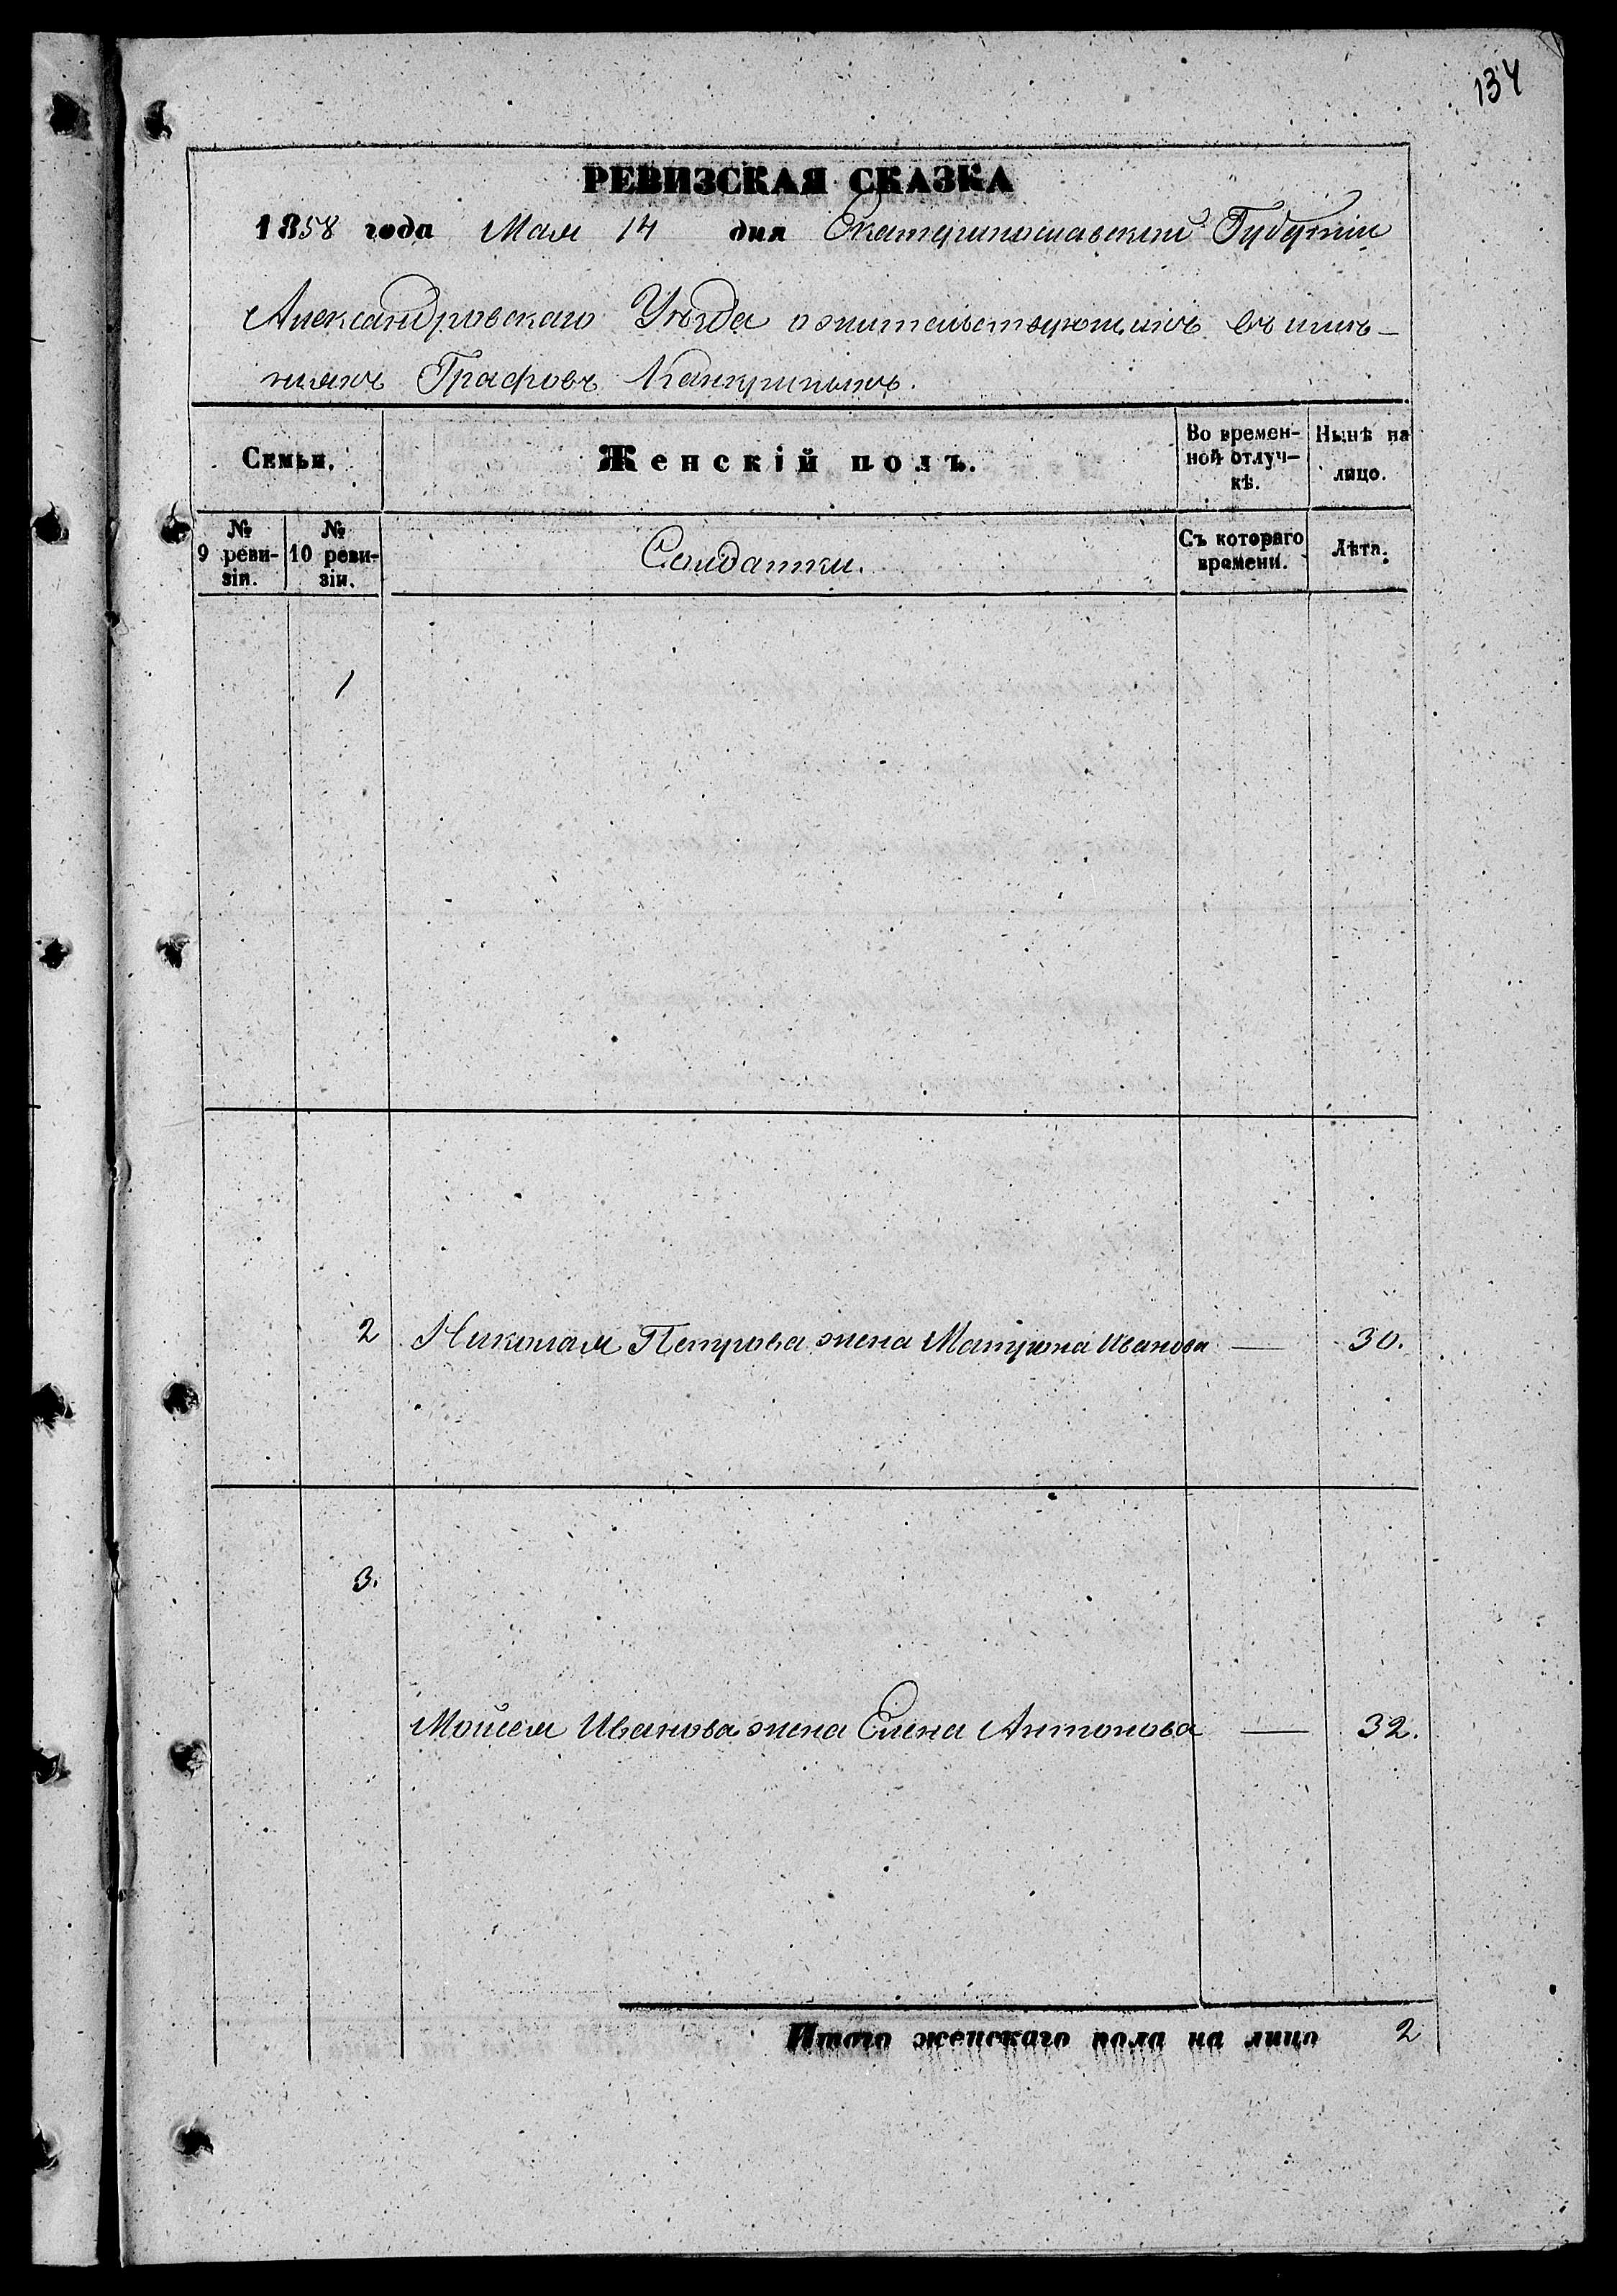 134
РЕВИЗСКАЯ СКАЗКА
1858 года Мая 14 дня Екатеринославской Губерніи
Александровскаго Уѣзда о жительствующихъ въ имѣ-
ніяхъ Графовъ Канкриныхъ.
Семьи. Женскій полъ. Во времен- Нынѣ на
ной отлуч- лицо.
кѣ.
№ № Солдатки. Съ котораго Лѣта.
9 реви- 10 реви- времени.
зіи. зіи.
1
2 Николая Петрова жена Матрона Иванова — 30.
3.
Мойсея Иванова жена Елена Антонова — 32.
Итого женскаго пола на лицо 2